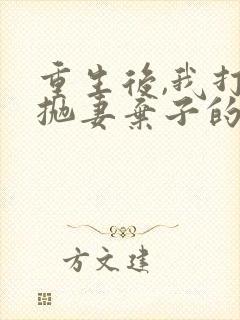 重生後,我打
抛妻棄子的
方文建